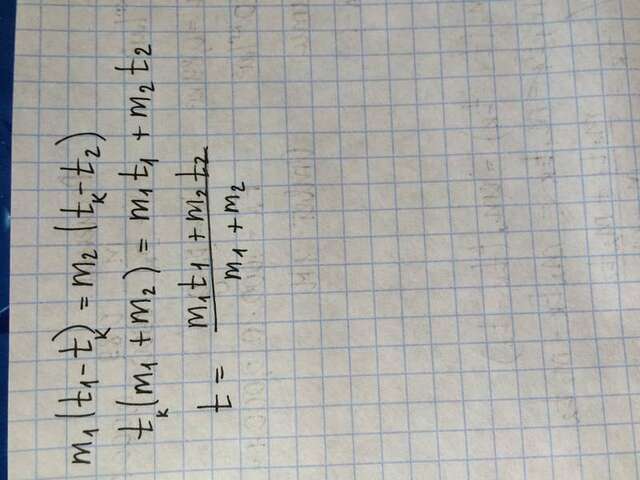 m₁(t₁-tₖ) = m₂(tₖ-t₂)
tₖ(m₁ + m₂) = m₁t₁ + m₂t₂
t = (m₁t₁ + m₂t₂)/(m₁ + m₂)